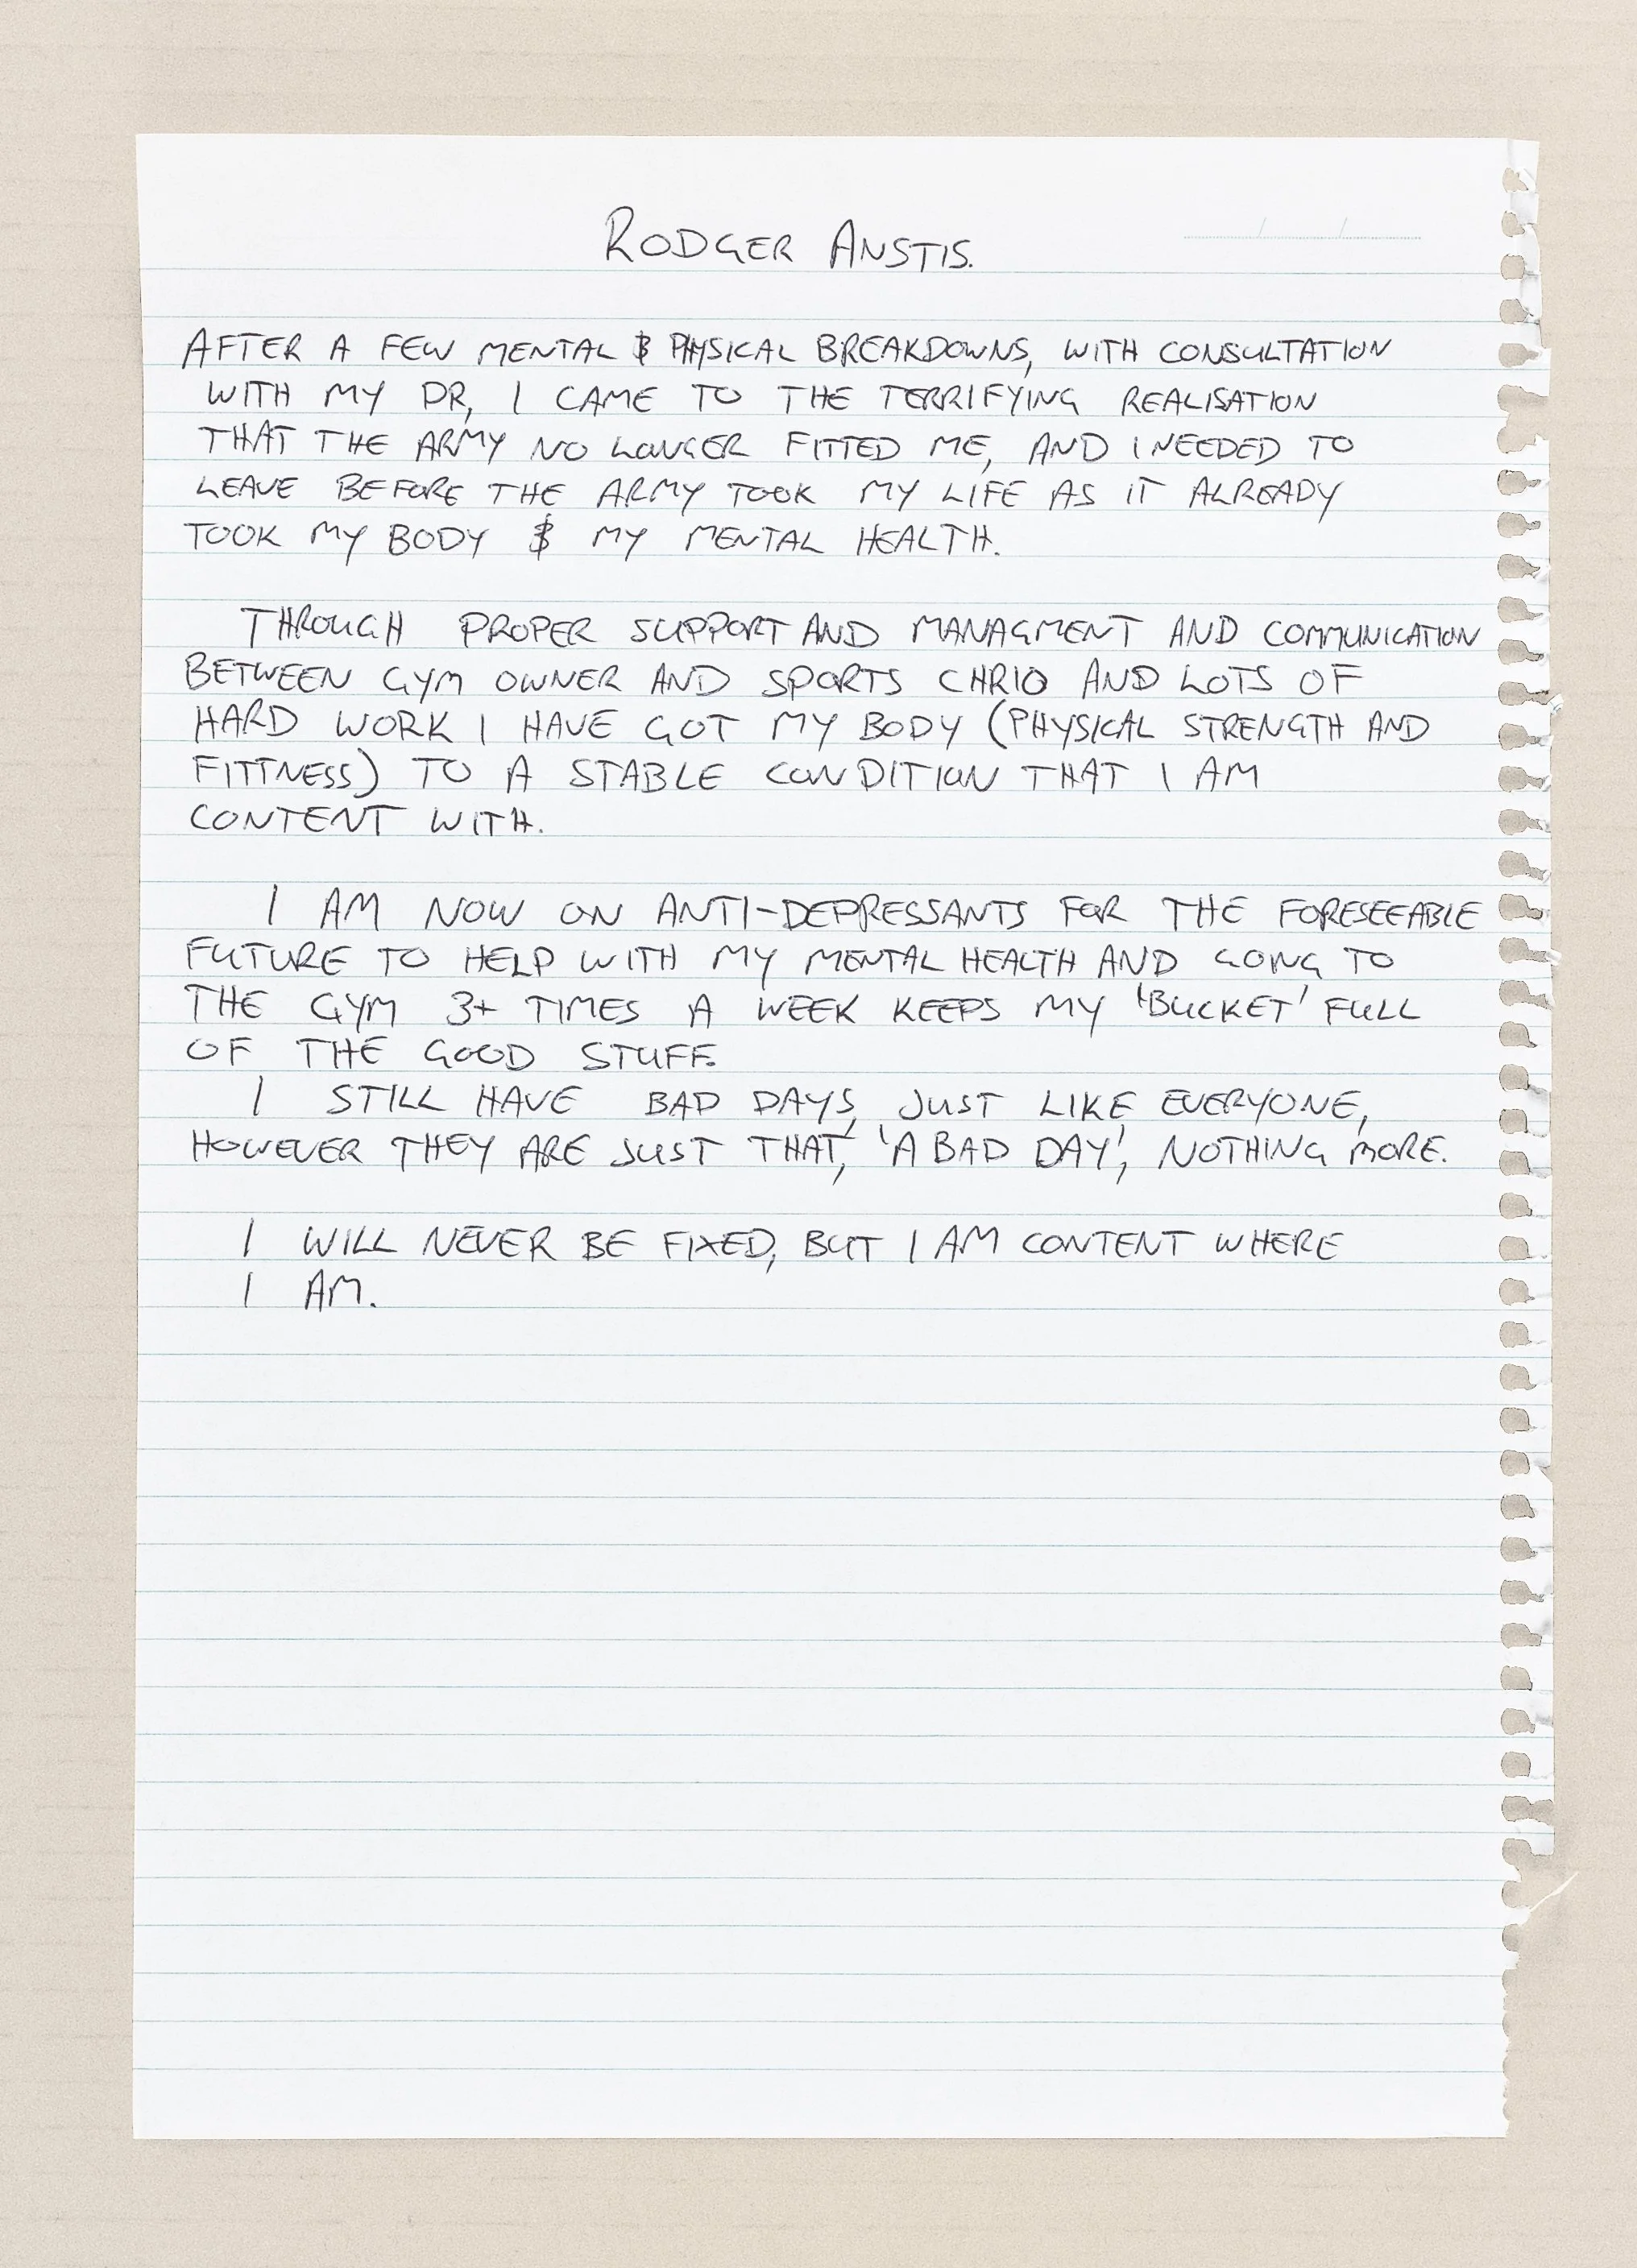 RODGER ANSTIS.
AFTER A FEW MENTAL & PHYSICAL BREAKDOWNS, WITH CONSULTATION
WITH MY DR, I CAME TO THE TERRIFYING REALISATION
THAT THE ARMY NO LONGER FITTED ME, AND I NEEDED TO
LEAVE BEFORE THE ARMY TOOK MY LIFE AS IT ALREADY
TOOK MY BODY & MY MENTAL HEALTH.
THROUGH PROPER SUPPORT AND MANAGMENT AND COMMUNICATION
BETWEEN GYM OWNER AND SPORTS CHRIO AND LOTS OF
HARD WORK I HAVE GOT MY BODY (PHYSICAL STRENGTH AND
FITTNESS) TO A STABLE CONDITION THAT I AM
CONTENT WITH.
I AM NOW ON ANTI-DEPRESSANTS FOR THE FORESEEABLE
FUTURE TO HELP WITH MY MENTAL HEALTH AND GOING TO
THE GYM 3+ TIMES A WEEK KEEPS MY 'BUCKET' FULL
OF THE GOOD STUFF.
I STILL HAVE BAD DAYS, JUST LIKE EVERYONE,
HOWEVER THEY ARE JUST THAT, 'A BAD DAY', NOTHING MORE.
I WILL NEVER BE FIXED, BUT I AM CONTENT WHERE
I AM.